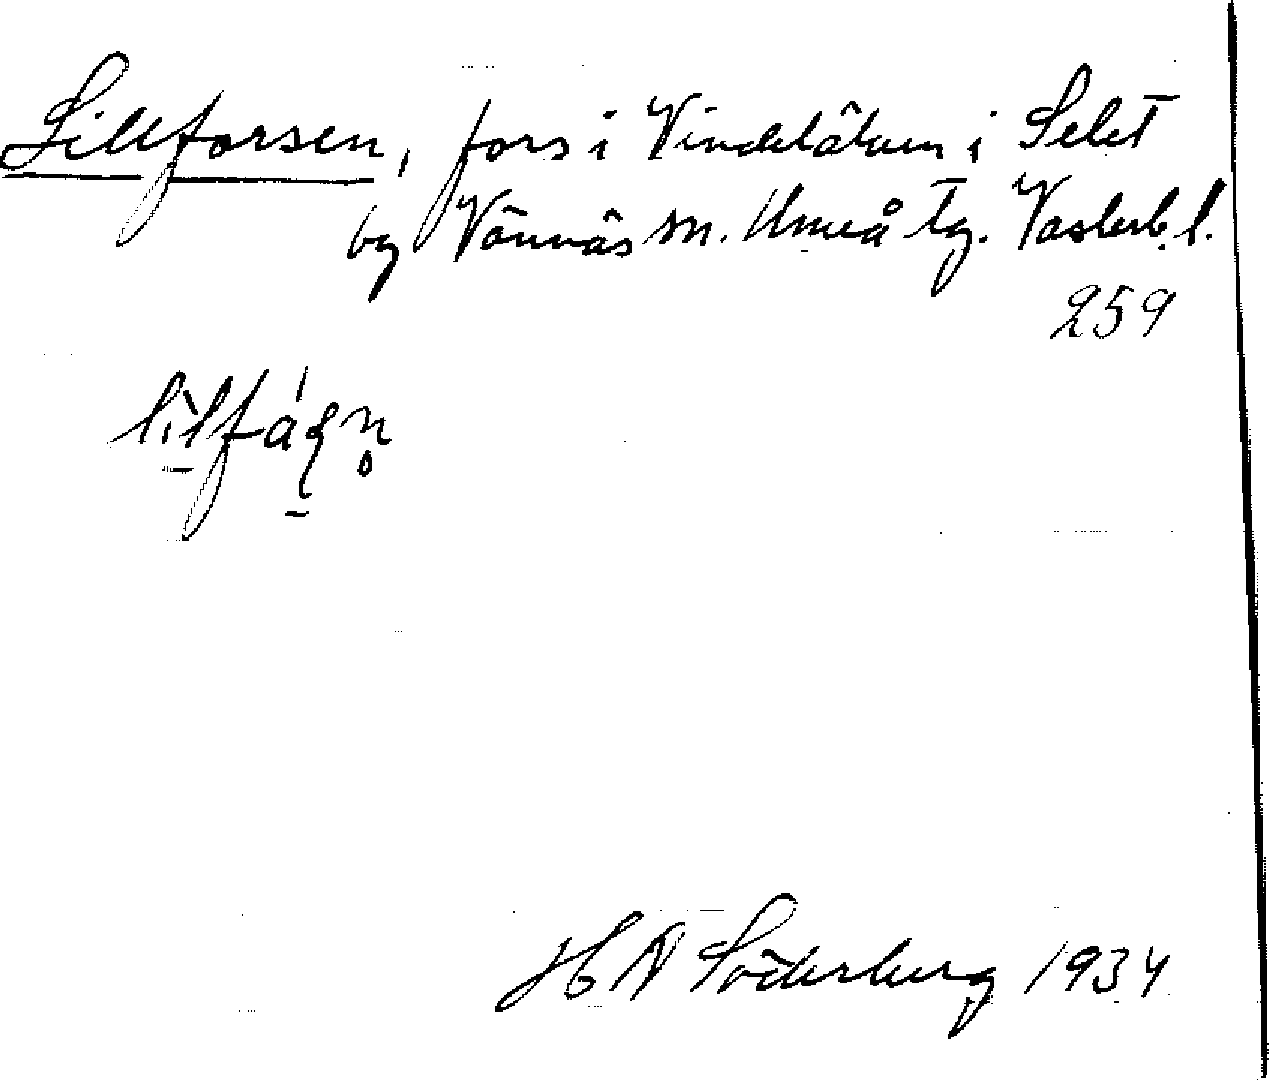 Lillforsen, fors i Vindelälven i Selet
by Vännäs sn. Umeå tg. Västerb. l.
259
H N Söderberg 1934